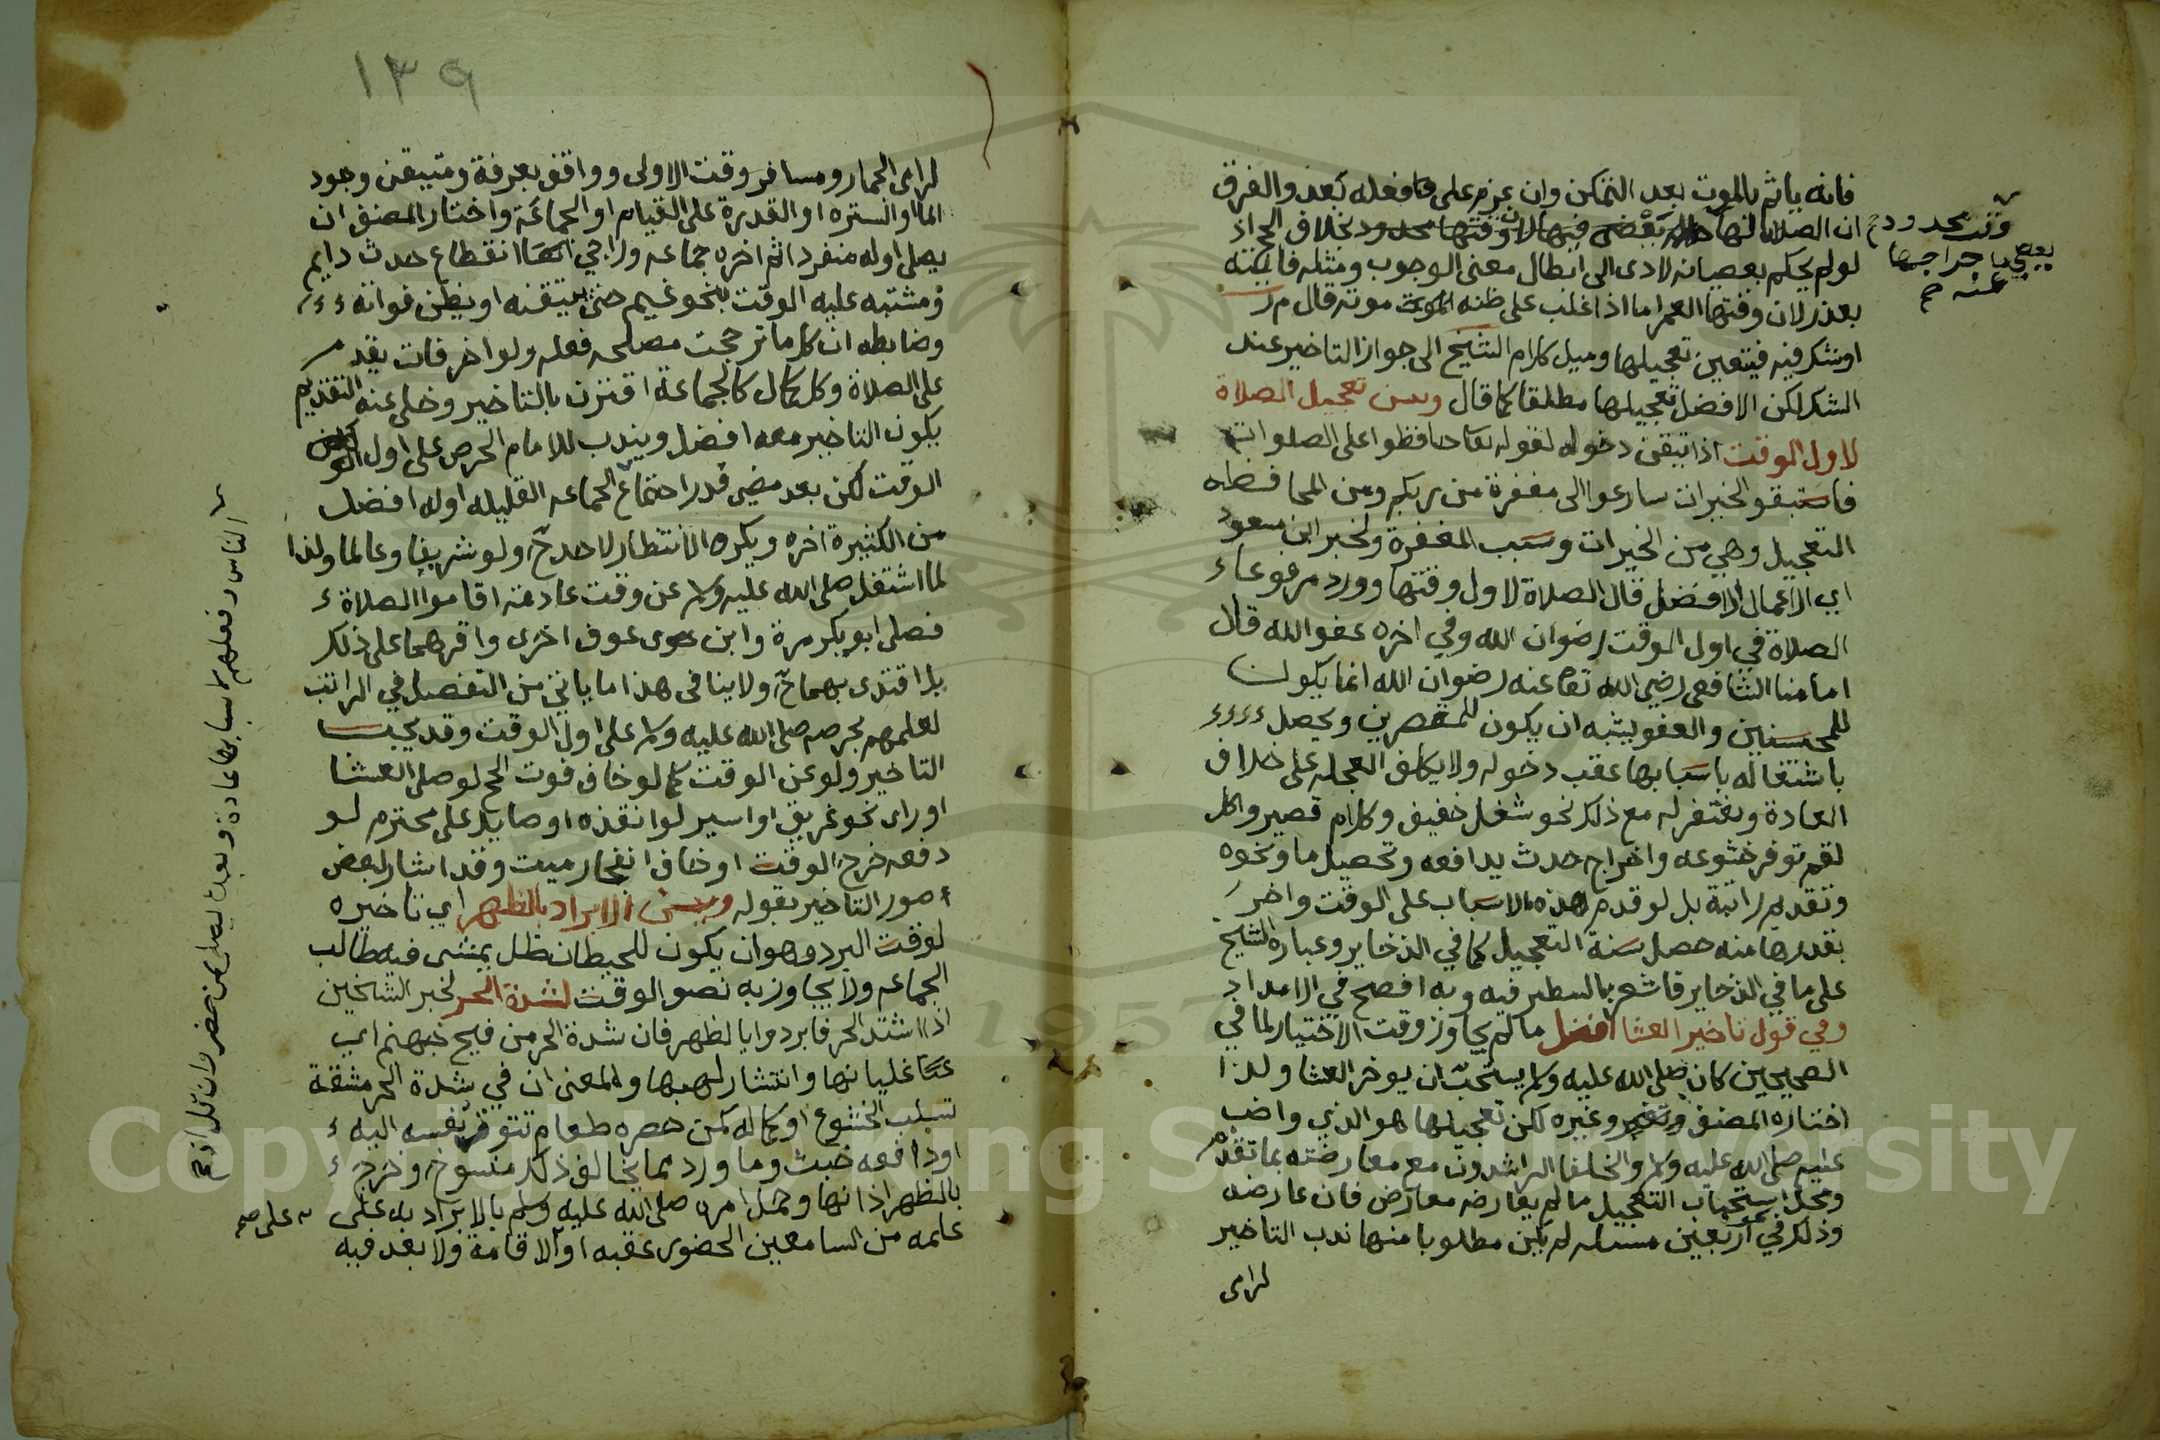 فانه ياثم بالموت بعد التمكن وان عزم على فعله بعد والفرق
ان الصلاة لها وقت محدود يعصي باخراجها عنه بخلاف الحج اذ
لو لم يحكم بعصيانه لادى الى ابطال معنى الوجوب ومثله فائتة
بعذر لان وقتها العمر اما اذا غلب على ظنه الموت موته قال م ر
او شك فيه فيتعين تعجيلها وميل كلام الشيخ الى جواز التاخير عند
الشك لكن الافضل تعجيلها مطلقا كما قال ويسن تعجيل الصلاة
لاول الوقت اذا تيقن دخوله لقوله تعا حافظوا على الصلوات
فاستبقو الخيرات سارعوا الى مغفرة من ربكم ومن المحافظه
التعجيل وهي من الخيرات وسبب المغفرة ولخبر ابن مسعود
اي الاعمال الافضل قال الصلاة لاول وقتها وورد مرفوعا
الصلاة في اول الوقت رضوان الله وفي اخره عفو الله قال
امامنا الشافعي رضي الله تعا عنه رضوان الله انما يكون
للمحسنين والعفو يشبه ان يكون للمقصرين ويحصل
باشتغاله باسبابها عقب دخوله ولا يكلف العجله على خلاف
العادة ويغتفر له مع ذلك نحو شغل خفيف وكلام قصير واكل
لقم توفر خشوعه واخراج حدث يدافعه وتحصيل ما ونحوه
وتقديم راتبة بل لو قدم هذه الاسباب على الوقت واخر
بقدرها منه حصل سنة التعجيل كما في الذخاير وعبارة الشيخ
على ما في الذخاير فاشعر بالتنظير فيه وبه افصح في الامداد
وفي قول تاخير العشا افضل ما لم يجاوز وقت الاختيار لما في
الصحيحين كان صلى الله عليه ولم يستحب ان يوخر العشا ولذا
اختاره المصنف وغيره لكن تعجيلها هو الذي واضب
عليه صلى الله عليه ولم والخلفا الراشدون مع معارضته بما تقدم
ومحل استحباب التعجيل ما لم يعارضه معارض فان عارضه
وذلك في نحو اربعين مسئله لم يكن مطلوبا منها ندب التاخير
لرامي
وقت محدود
يعصي باخراجها
عنه صح
١٣٩
لرامي الجمار ومسافر وقت الاولى وواقف بعرفة ومتيقن وجود
الما او الستره او القدرة على القيام او الجماعة واختار المصنف ان
يصلي اوله منفردا ثم اخره جماعه وراجي انقطاع حدث دايم
ومشتبه عليه الوقت بنحو غيم حتى يتيقنه او يظن فواته
وضابطه ان كل ما ترجحت مصلحه فعله ولو اخر فات يقدم
على الصلاة وكل كمال كالجماعة اقترن بالتاخير وخلى عنه التقديم
يكون التاخير معه افضل ويندب للامام الحرص على اول
الوقت لكن بعد مضي قدر اجتماع الجماعه القليله اوله افضل
من الكثيرة اخره ويكره الانتظار لاحد ح ولو شريفا وعالما ولذا
لما اشتغل صلى الله عليه ولم عن وقت عادته اقاموا الصلاة
فصلى ابو بكر مرة وابن عوف اخرى واقرهما على ذلك
بل اقتدى بهما ح ولا ينافى هذا ما ياتي من التفصيل في الراتب
لعلمهم بحرصه صلى الله عليه ولم على اول الوقت وقد يجب
التاخير ولو عن الوقت كما لو خاف فوت الحج لو صلى العشا
او راى نحو غريق او اسير لو انقذه او صايل على محترم لو
دفعه خرج الوقت او خاف انفجار ميت وقد اشار لبعض
صور التاخير بقوله ويسن الابراد بالظهر اي تاخيره
لوقت البرد وهو ان يكون للحيطان ظل يمشى فيه طالب
الجماعه ولا يجاوز به نصف الوقت لشدة الحر لخبر الشيخين
اذا اشتد الحر فابردوا بالظهر فان شدة الحر من فيح جهنم اي
غليانها وانتشار لهبها والمعنى ان في شدة الحر مشقة
تسلب الخشوع او كماله كمن حضره طعام تتوق نفسه اليه
او دافعه خبث وما ورد مما يخالف ذلك منسوخ وخرج
بالظهر اذانها وحمل امره صلى الله عليه وسلم بالابراد به على
علمه من السامعين الحضور عقبه او الاقامة ولا بعد فيه
على صح